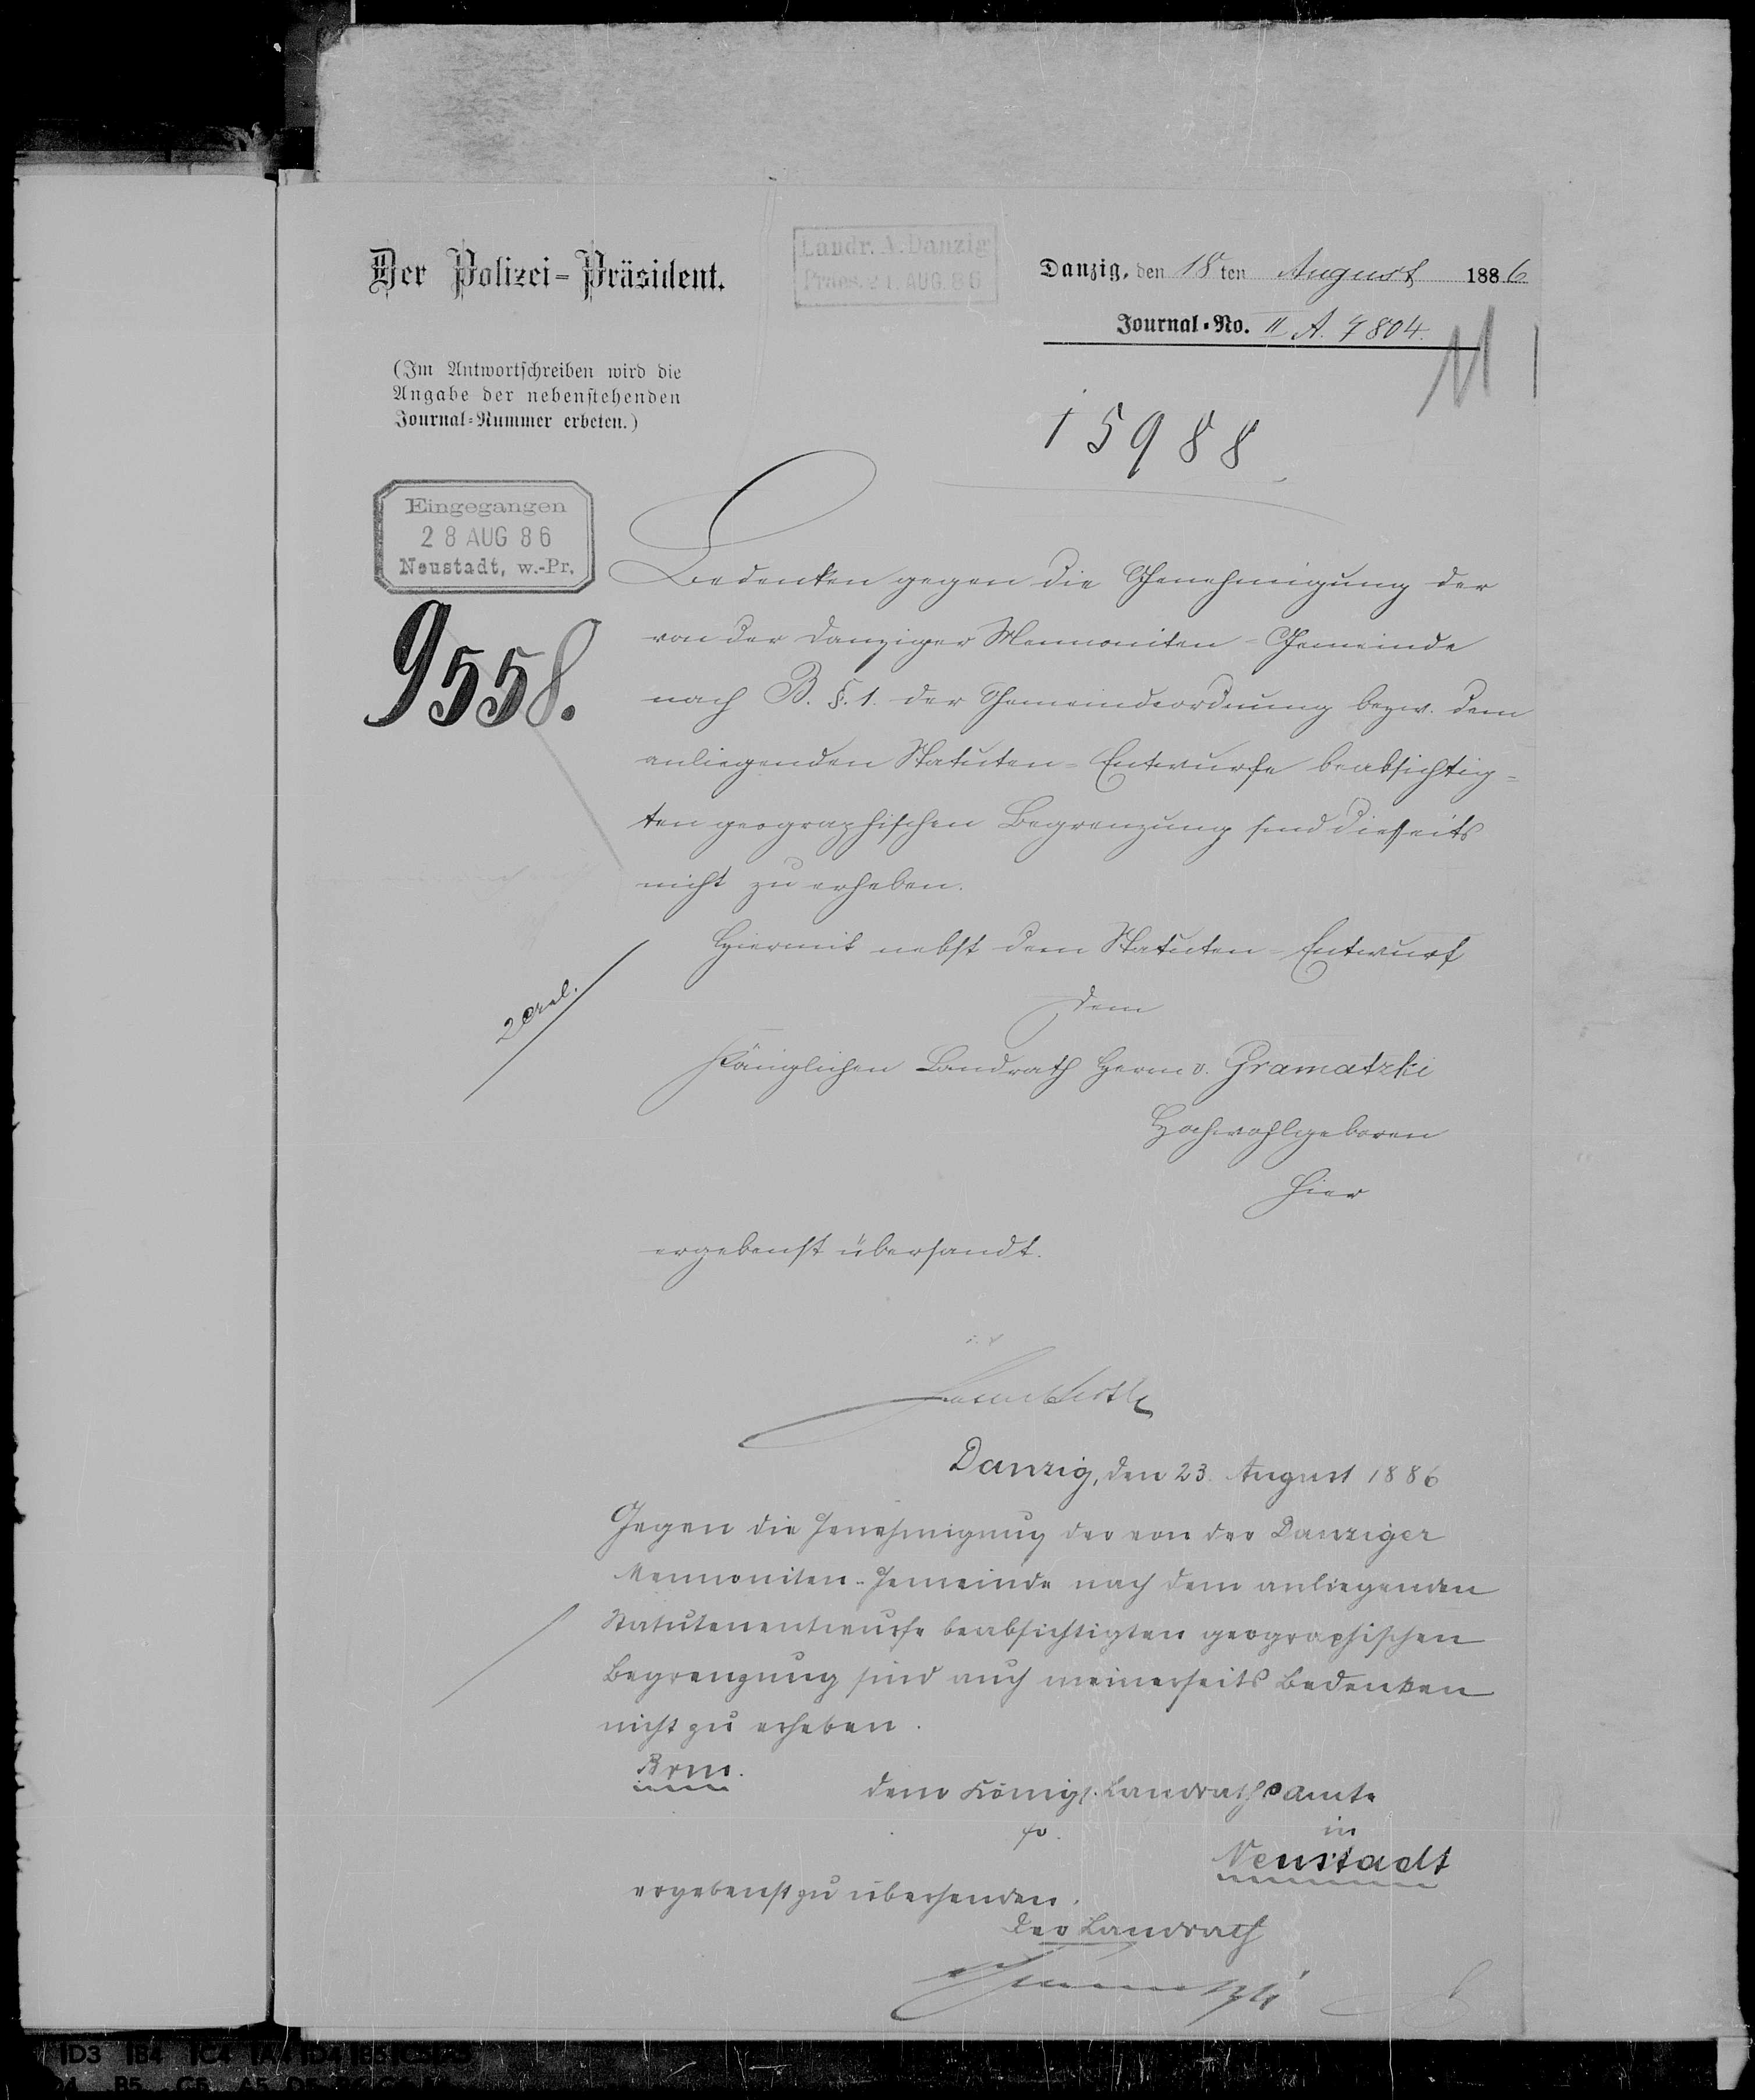 Der Polizei-Präsident.
Landr. A. Danzig
Praes. 21. AUG. 86
Danzig, den 18ten August 1886
Journal-No. II A. 7804.
(Im Antwortschreiben wird die
Angabe der nebenstehenden
Journal-Nummer erbeten.)
15988
Eingegangen
28 AUG 86
Neustadt, w.-Pr.
9558.
Bedenken gegen die Genehmigung der
von der Danziger Mennoniten-Gemeinde
nach B. §. 1. der Gemeindeordnung bezw. dem
anliegenden Statuten-Entwurfe beabsichtig-
ten geographischen Begrenzung sind diesseits
nicht zu erheben.
Hiermit nebst dem Statuten-Entwurf
dem
Königlichen Landrath Herrn v. Gramatzki
Hochwohlgeboren
hier
ergebenst übersandt.
Danzig, den 23. August 1886
Gegen die Genehmigung der von der Danziger
Mennoniten-Gemeinde nach dem anliegenden
Statutenentwurfe beabsichtigten geographischen
Begrenzung sind auch meinerseits Bedenken
nicht zu erheben.
Brm.
dem Königl. Landrathsamte
in
Neustadt
ergebenst zu übersenden.
Der Landrath
Gramatzki